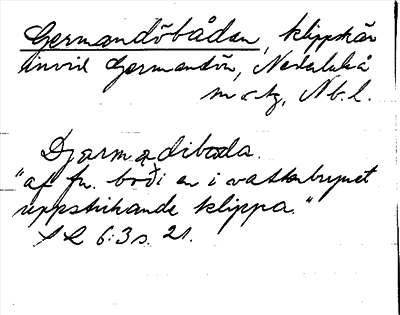 Germandöbådan, klippskär
invid Germandön, Nederluleå
m o tg, Nb. l.
Djarmadibåda.
"af fn. boði en i vattenbrynet
uppstickande klippa."
SL 6:3 s. 21.